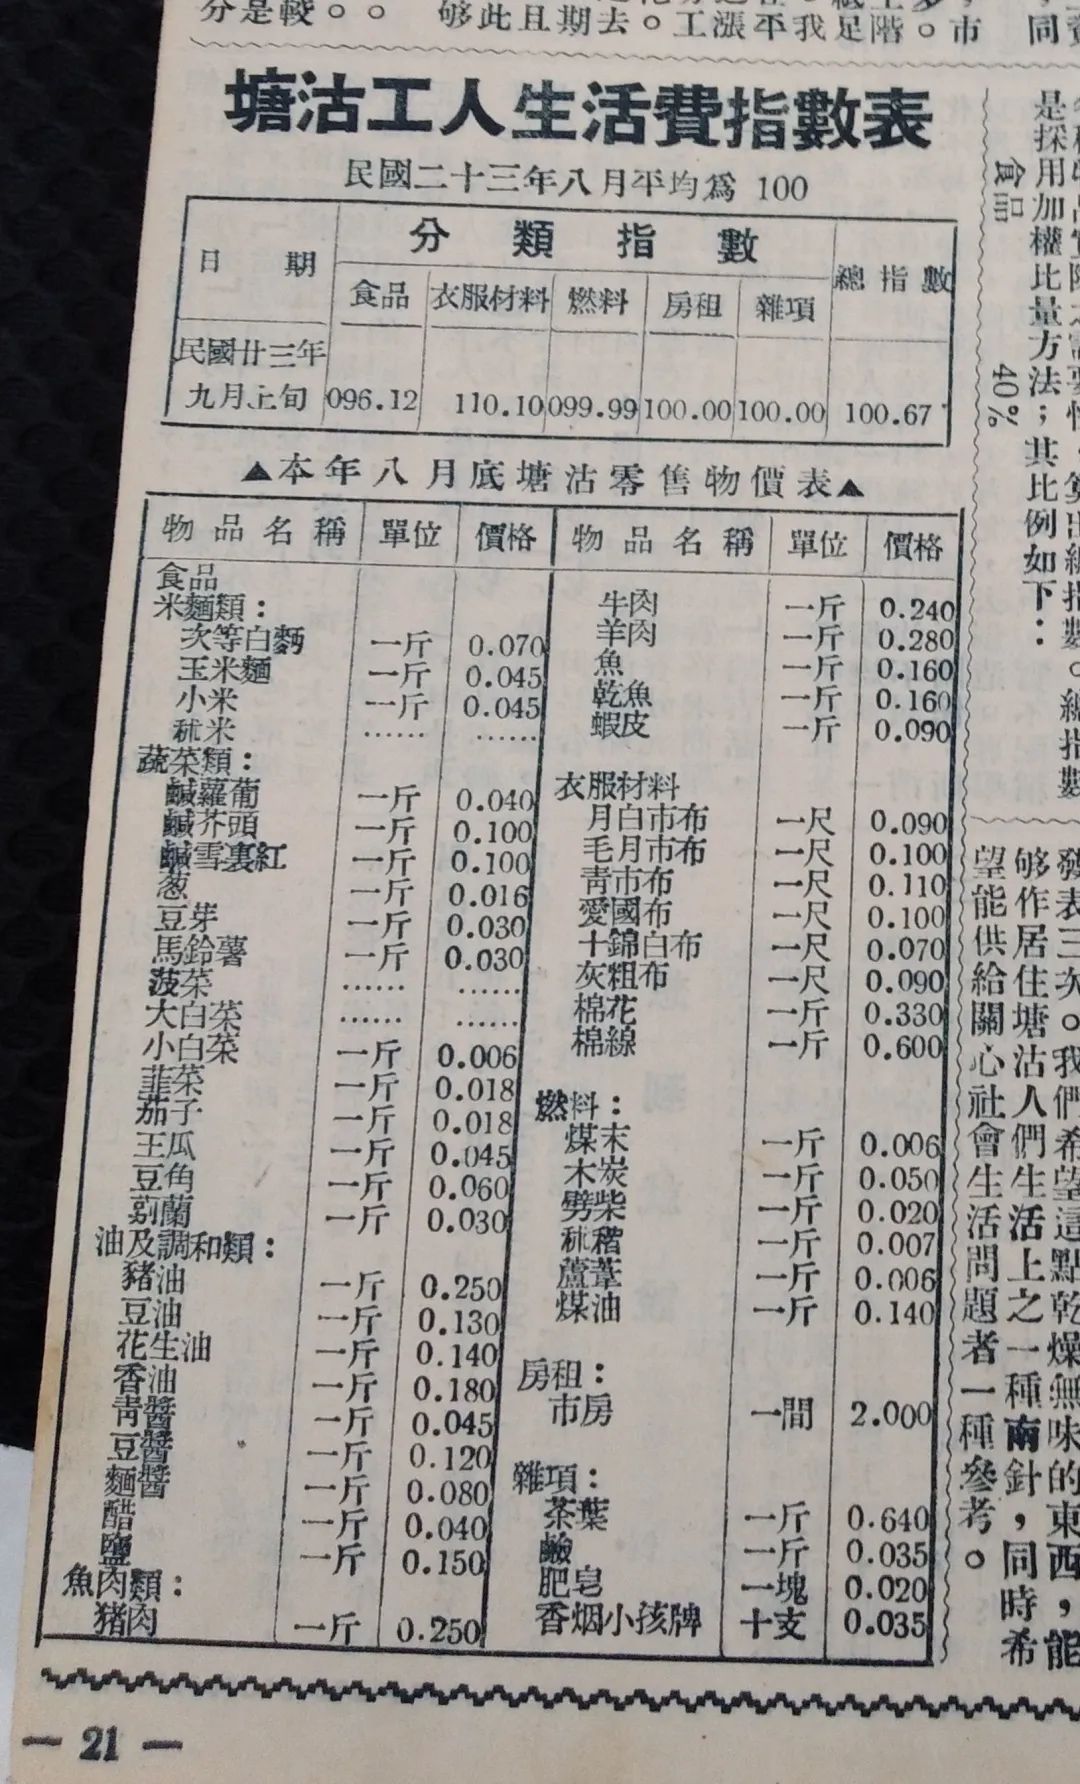 分是較。。 够此且期去。工漲平我足階。市 同
塘沽工人生活費指數表
民國二十三年八月平均為 100
日期 分類指數 總指數
食品 衣服材料 燃料 房租 雜項
民國廿三年
九月上旬 096.12 110.10 099.99 100.00 100.00 100.67
▲本年八月底塘沽零售物價表▲
物品名稱 單位 價格 物品名稱 單位 價格
食品
米麵類：
次等白麵 一斤 0.070
玉米麵 一斤 0.045
小米 一斤 0.045
秫米 …… ……
蔬菜類：
鹹蘿蔔 一斤 0.040
鹹芥頭 一斤 0.100
鹹雪裏紅 一斤 0.100
葱 一斤 0.016
豆芽 一斤 0.030
馬鈴薯 一斤 0.030
菠菜 …… ……
大白菜 …… ……
小白菜 一斤 0.006
韮菜 一斤 0.018
茄子 一斤 0.018
王瓜 一斤 0.045
豆角 一斤 0.060
蘭 一斤 0.030
油及調和類：
豬油 一斤 0.250
豆油 一斤 0.130
花生油 一斤 0.140
香油 一斤 0.180
靑醬 一斤 0.045
豆醬 一斤 0.120
麵醬 一斤 0.080
醋 一斤 0.040
鹽 一斤 0.150
魚肉類：
豬肉 一斤 0.250
牛肉 一斤 0.240
羊肉 一斤 0.280
魚 一斤 0.160
乾魚 一斤 0.160
蝦皮 一斤 0.090
衣服材料
月白市布 一尺 0.090
毛月市布 一尺 0.100
靑市布 一尺 0.110
愛國布 一尺 0.100
十錦白布 一尺 0.070
灰粗布 一尺 0.090
棉花 一斤 0.330
棉線 一斤 0.600
燃料：
煤末 一斤 0.006
木炭 一斤 0.050
劈柴 一斤 0.020
秫稭 一斤 0.007
蘆葦 一斤 0.006
煤油 一斤 0.140
房租：
市房 一間 2.000
雜項：
茶葉 一斤 0.640
鹼 一斤 0.035
肥皂 一塊 0.020
香烟小孩牌 十支 0.035
是採用加權比量方法；其比例如下：
食品 40%
發表三次。我們希望這點乾燥無味的東西，能
够作居住塘沽人們生活上之一種南針，同時希
望能供給關心社會生活問題者一種參考。
— 21 —